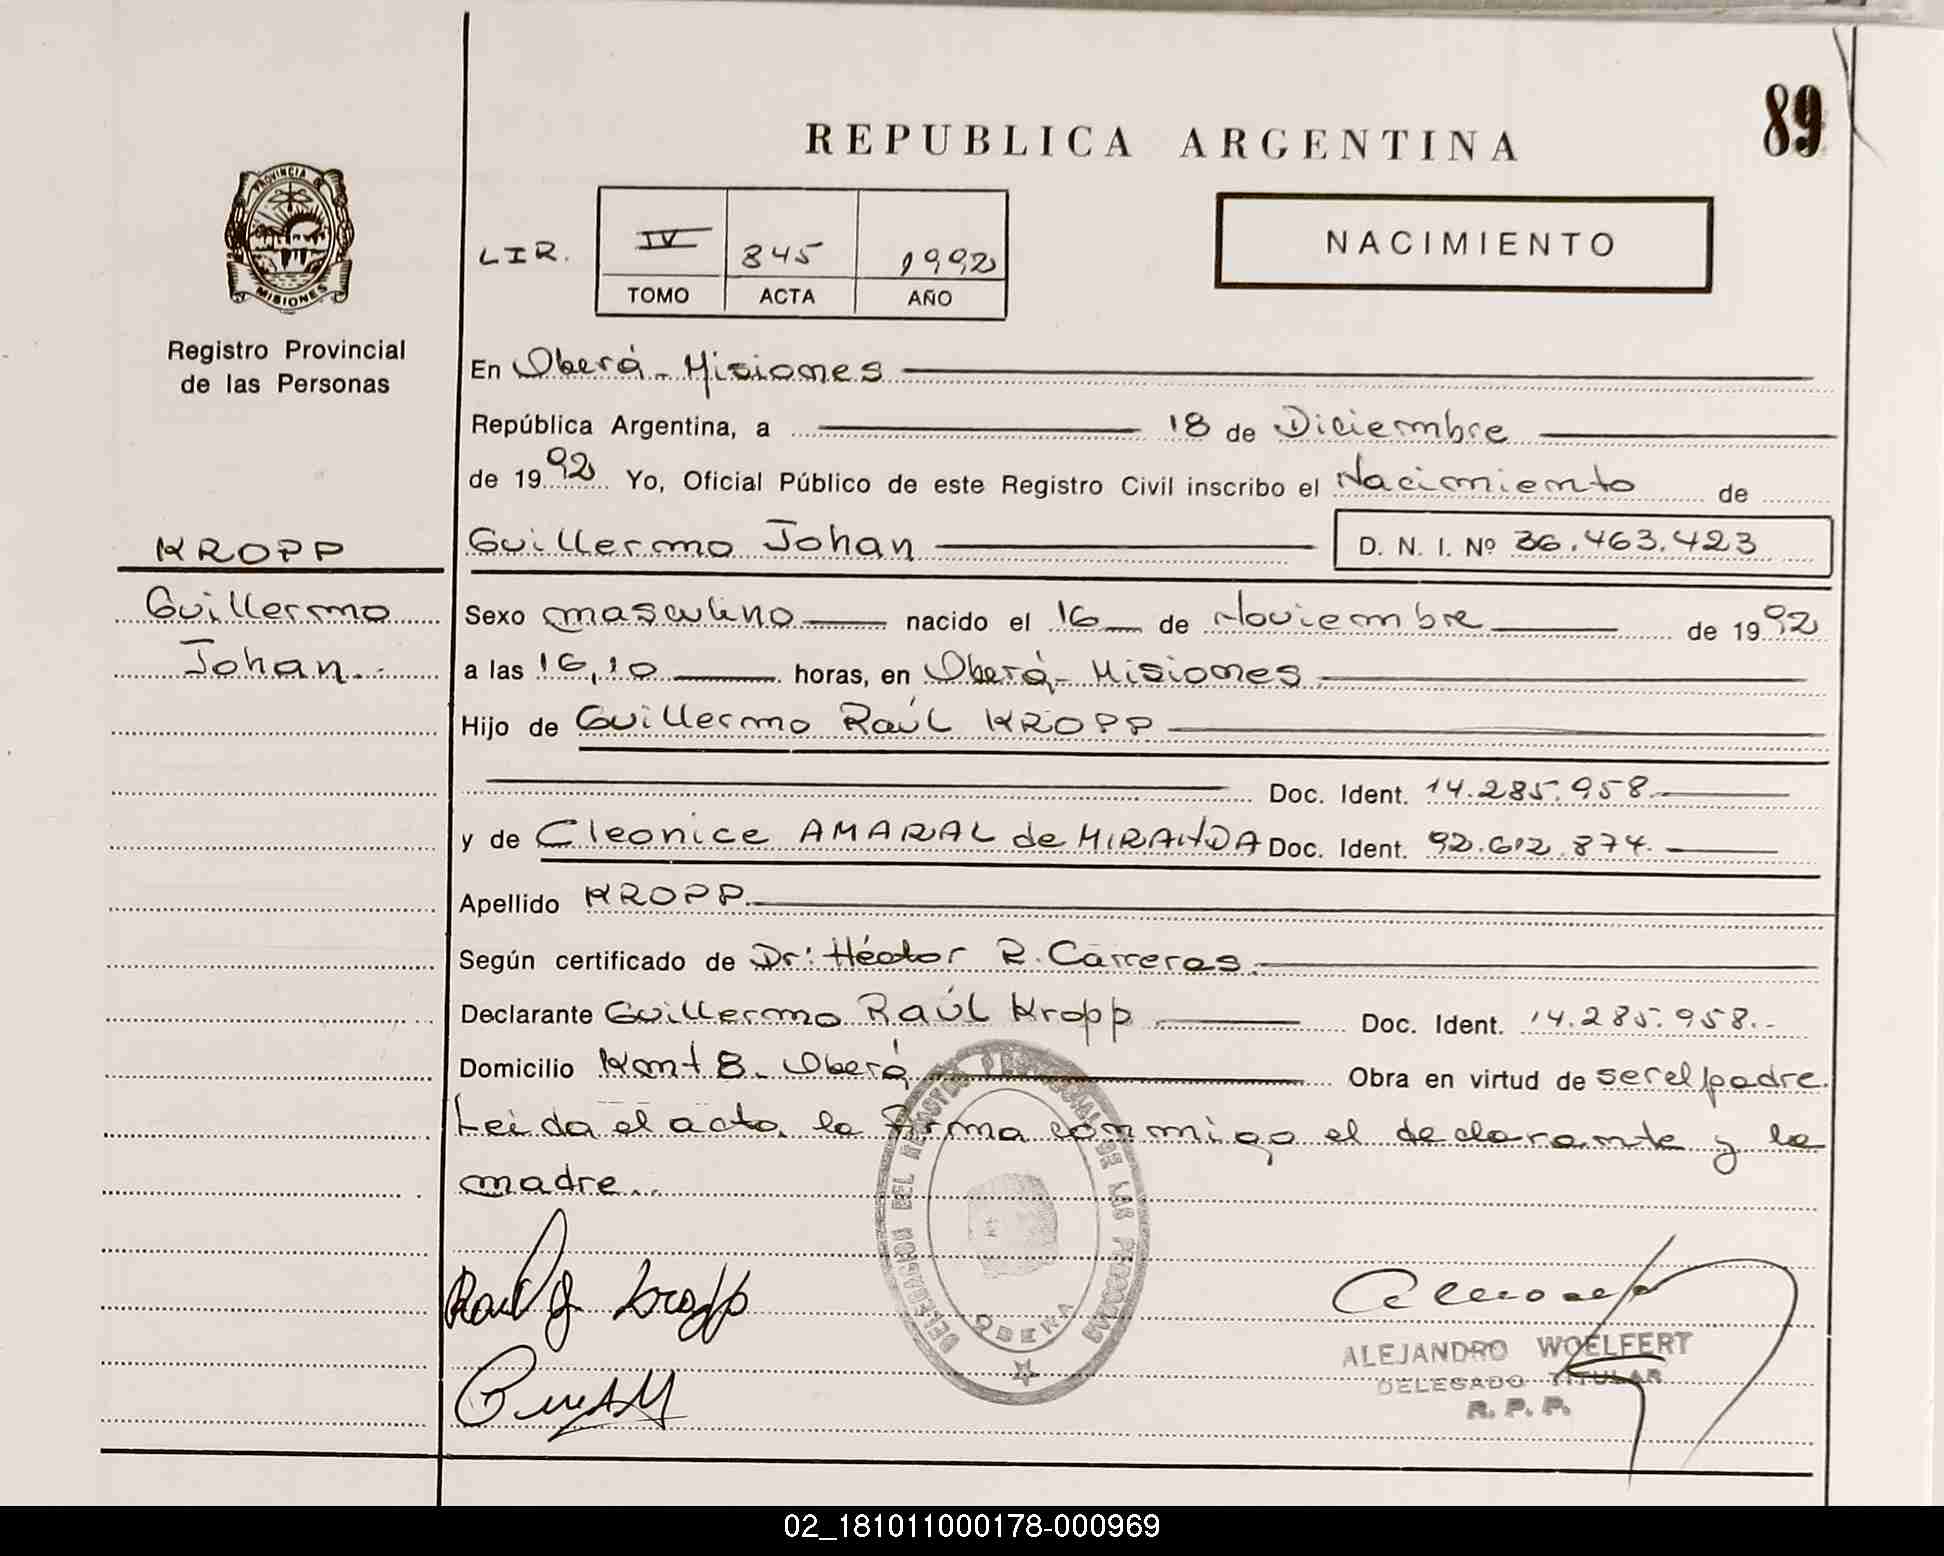 89
REPUBLICA ARGENTINA
PROVINCIA DE
MISIONES
Registro Provincial
de las Personas
NACIMIENTO
LIR. IV 845 1992
TOMO ACTA AÑO
En Oberá - Misiones
República Argentina, a 18 de Diciembre
de 1992 Yo, Oficial Público de este Registro Civil inscribo el Nacimiento de
KROPP
Guillermo
Johan.
Guillermo Johan D. N. I. Nº 36.463.423
Sexo masculino nacido el 16 de Noviembre de 1992
a las 16,10 horas, en Oberá - Misiones
Hijo de Guillermo Raúl KROPP
Doc. Ident. 14.285.958
y de Cleonice AMARAL de MIRANDA Doc. Ident. 92.612.874.
Apellido KROPP
Según certificado de Dr: Héctor R. Carreras
Declarante Guillermo Raúl Kropp Doc. Ident. 14.285.958.-
Domicilio Km+ 8. Oberá Obra en virtud de ser el padre.
Leida el acta, la firma conmigo el declarante y la
madre..
DELEGACION DEL REGISTRO PROVINCIAL DE LAS PERSONAS
OBERA
Raul G Kropp
ALEJANDRO WOELFERT
DELEGADO TITULAR
R. P. P.
02_181011000178-000969